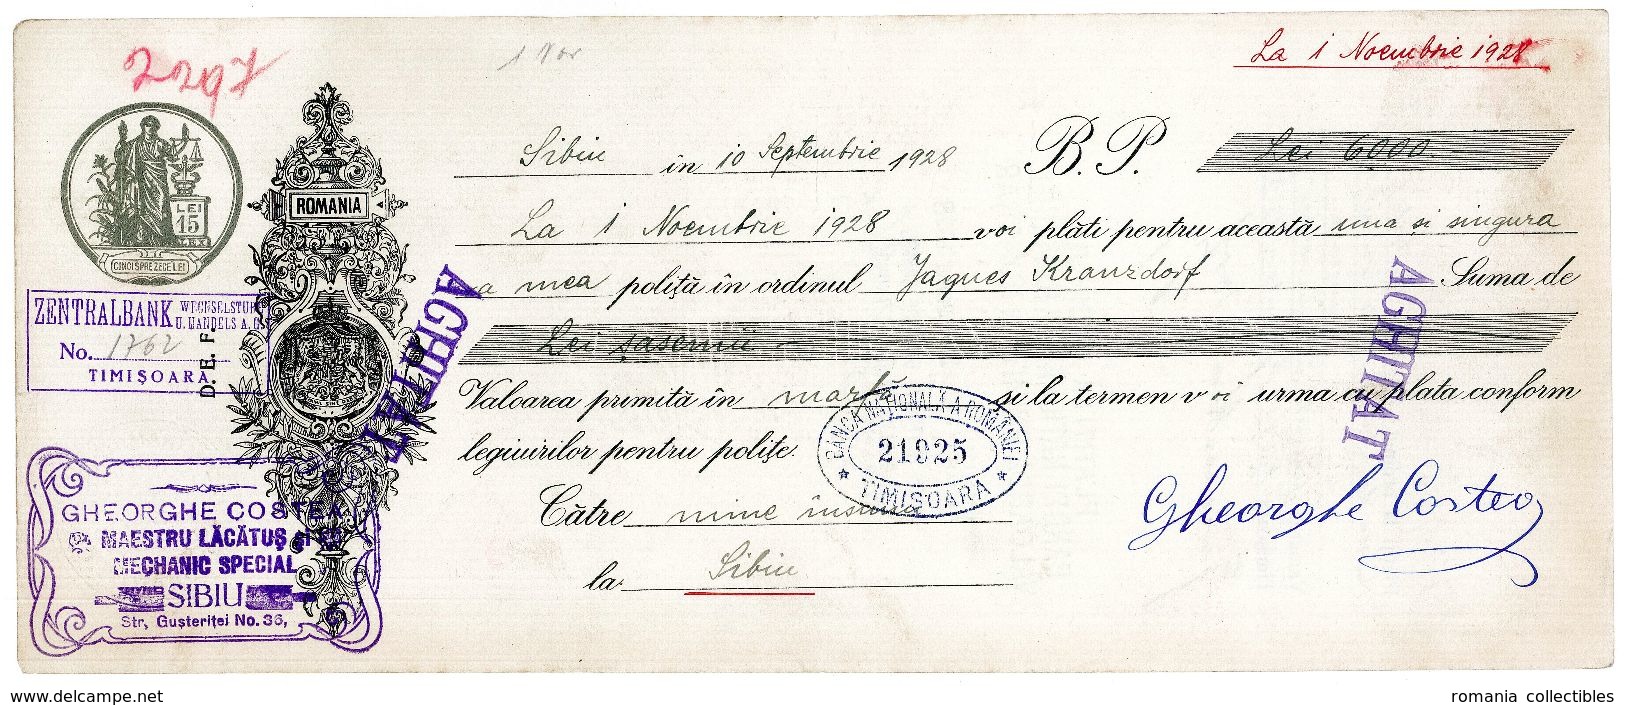 2297
1 Nov
La 1 Noembrie 1928
Sibiu în 10 Septembrie 1928 B.P. Lei 6000
La 1 Noembrie 1928 voi plăti pentru această una și singura
a mea poliță în ordinul Jaques Kranzdorf Suma de
Lei șasemii
Valoarea primită în marfă și la termen voi urma cu plata conform
legiuirilor pentru polițe.
Către mine însumi
la Sibiu
Gheorghe Costea
ROMANIA
LEI
15
LEX
CINCISPREZECE LEI
ZENTRALBANK WECHSELSTUBEN
U. HANDELS A.G.
No. 1762
TIMIȘOARA
D. E. F.
ACHITAT
ACHITAT
BANCA NAȚIONALĂ A ROMÂNIEI
21925
TIMIȘOARA
GHEORGHE COSTEA
MAESTRU LĂCĂTUȘ ȘI
MECHANIC SPECIAL
SIBIU
Str, Gușteriței No. 36,
www.delcampe.net
romania collectibles